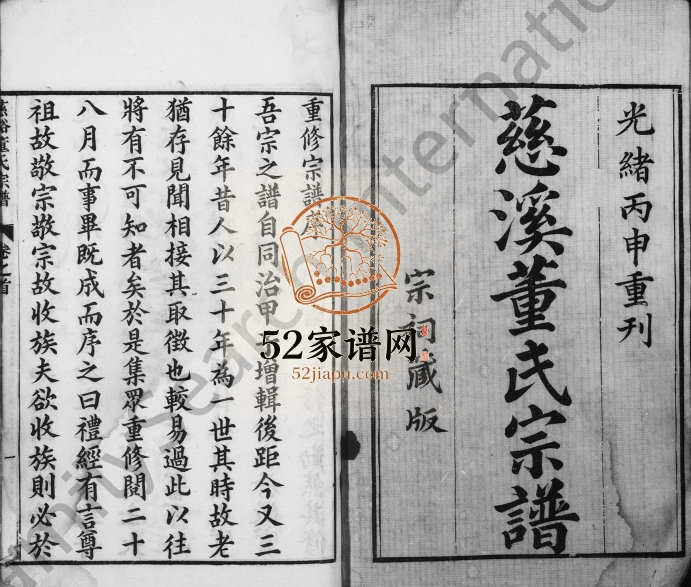 光緒丙申重刊
慈溪董氏宗譜
宗祠藏版
重修宗譜序
吾宗之譜自同治甲 增輯後距今又三
十餘年昔人以三十年為一世其時故老
猶存見聞相接其取徵也較易過此以往
將有不可知者矣於是集眾重修閱二十
八月而事畢既成而序之曰禮經有言尊
祖故敬宗敬宗故收族夫欲收族則必於
慈谿董氏宗譜
卷之首
一
52家谱网
52jiapu.com
FamilySearch International